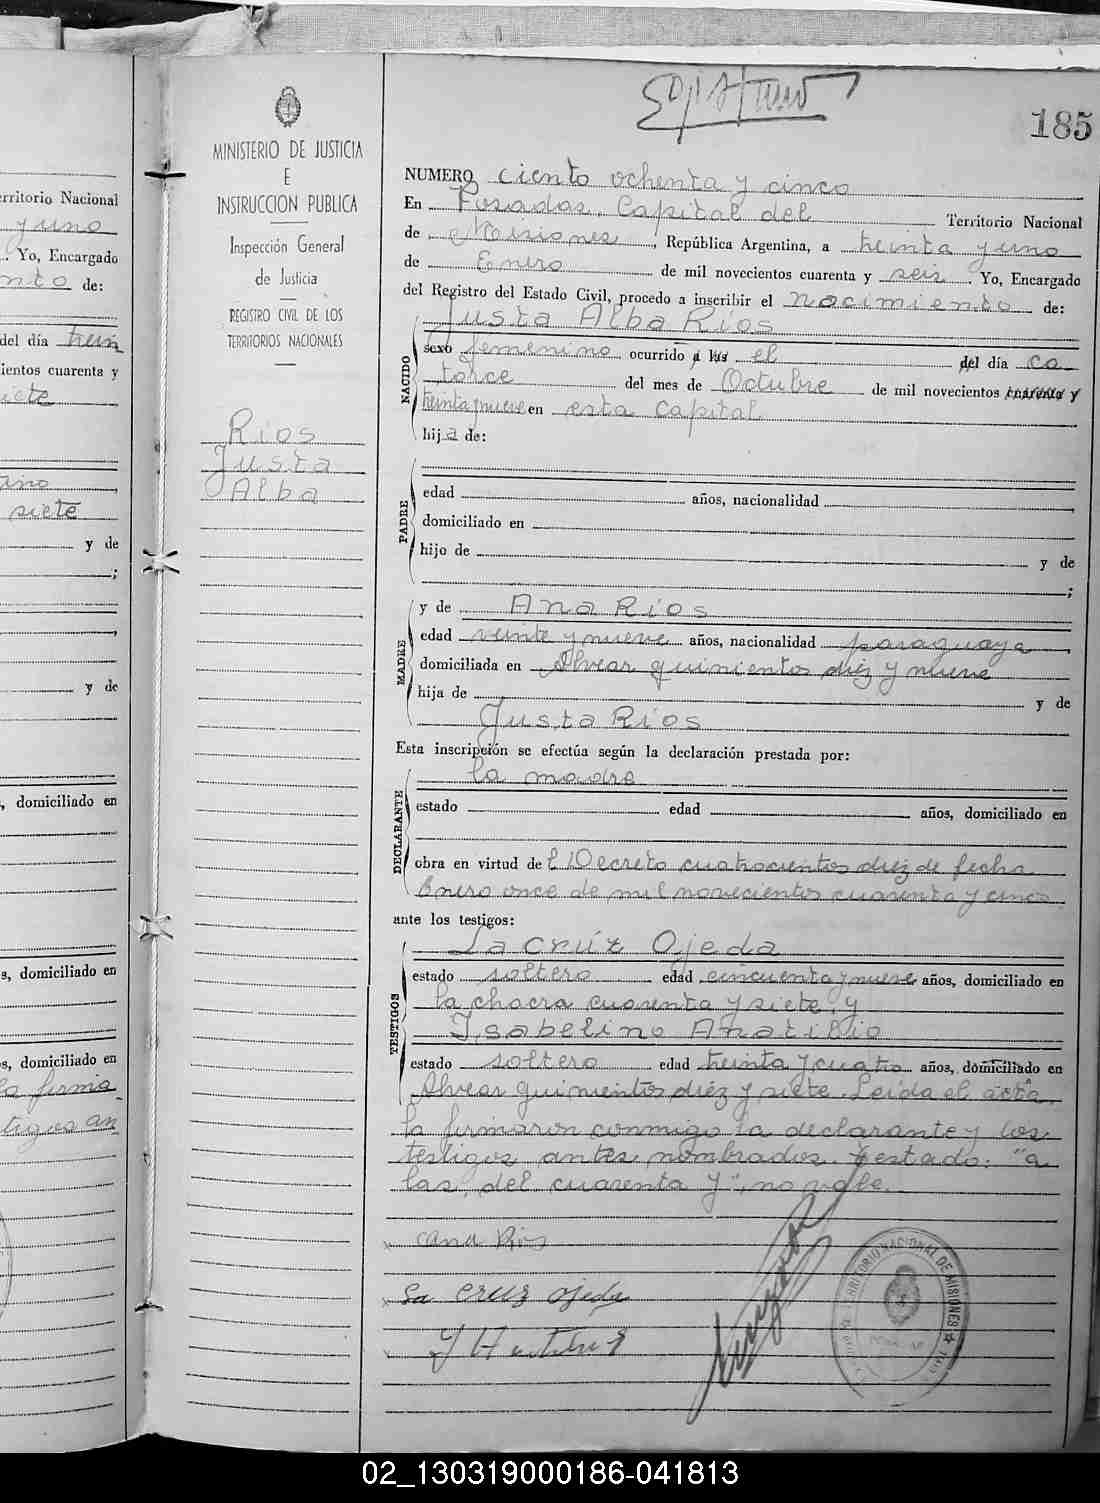 185
MINISTERIO DE JUSTICIA
E
INSTRUCCION PUBLICA
Inspección General
de Justicia
REGISTRO CIVIL DE LOS
TERRITORIOS NACIONALES
Rios
Justa
Alba
NUMERO ciento ochenta y cinco
En Posadas, Capital del Territorio Nacional
de Misiones, República Argentina, a treinta y uno
de Enero de mil novecientos cuarenta y seis. Yo, Encargado
del Registro del Estado Civil, procedo a inscribir el nacimiento de:
Justa Alba Rios
NACIDO
sexo femenino ocurrido a las el del día ca
torce del mes de Octubre de mil novecientos cuarenta y
treinta y nueve en esta capital
hija de:
PADRE
edad años, nacionalidad
domiciliado en
hijo de y de
;
MADRE
y de Ana Rios
edad veinte y nueve años, nacionalidad paraguaya
domiciliada en Alvear quinientos diez y nueve
hija de y de
Justa Rios
Esta inscripción se efectúa según la declaración prestada por:
la madre
DECLARANTE
estado edad años, domiciliado en
obra en virtud de el Decreto cuatrocientos diez de fecha
Enero once de mil novecientos cuarenta y cinco
ante los testigos:
La Crúz Ojeda
TESTIGOS
estado soltero edad cincuenta y nueve años, domiciliado en
la chacra cuarenta y siete, y
Isabelino
estado soltero edad treinta y cuatro años, domiciliado en
Alvear quinientos diez y siete. Leída el acta,
la firmaron conmigo la declarante y los
testigos antes nombrados. Testado: "a
las, del cuarenta y", no vale.
Ana Rios
La cruz ojeda
TERRITORIO NACIONAL DE MISIONES
erritorio Nacional
y uno
. Yo, Encargado
nto de:
del día trein
ientos cuarenta y
siete
siete
y de
;
y de
, domiciliado en
s, domiciliado en
s, domiciliado en
la firma
tigos an
02_130319000186-041813